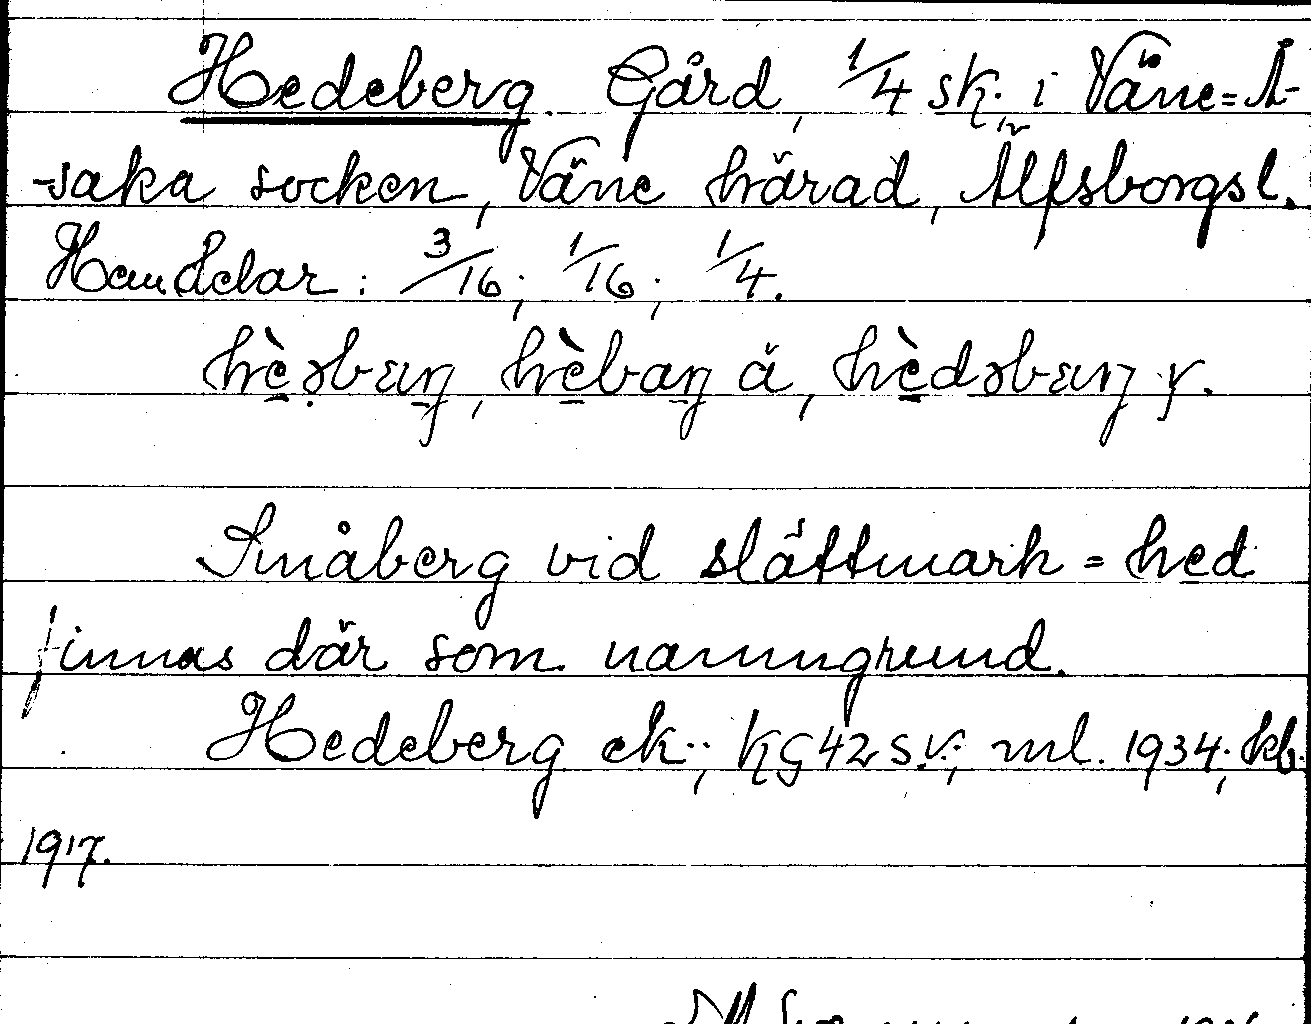 Hedeberg. Gård, 1/4 sk. i Väne=Å-
-saka socken, Väne härad, Älfsborgsl.
Hemdelar: 3/16; 1/16; 1/4.
ä, y.
Småberg vid slättmark = hed
finnas där som namngrund.
Hedeberg ek.; KG42 s.v.; ml. 1934; kb.
1917.